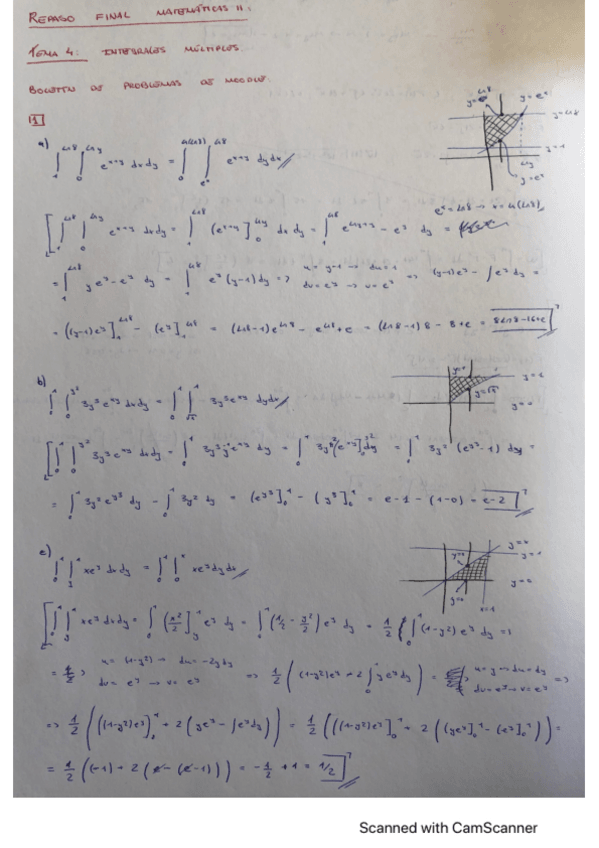 REPASO FINAL MATEMÁTICAS II:
TEMA 4: INTEGRALES MÚLTIPLES.
BOLETÍN DE PROBLEMAS DE MOODLE.
1
a) ∫₁^{ln8} ∫₀^{lny} e^{x+y} dxdy = ∫₀^{ln(ln8)} ∫_{e^x}^{ln8} e^{x+y} dydx
y=e^x
y=ln8
y=1
e^x = ln8 → x = ln(ln8)
[∫₁^{ln8} ∫₀^{lny} e^{x+y} dxdy = ∫₁^{ln8} (e^{x+y}]₀^{lny} dx dy = ∫₁^{ln8} e^{lny+y} - e^y dy =
= ∫₁^{ln8} y e^y - e^y dy = ∫₁^{ln8} e^y (y-1) dy => u = y-1 → du = 1 => (y-1)e^y - ∫e^y dy =
dv = e^y → v = e^y
= ((y-1)e^y]₁^{ln8} - (e^y]₁^{ln8} = (ln8-1)e^{ln8} - e^{ln8} + e = (ln8-1) 8 - 8 + e = 8ln8 - 16 + e
b) ∫₀¹ ∫₀^{y²} 3y³e^{xy} dxdy = ∫₀¹ ∫_{√x}¹ 3y³e^{xy} dydx
y=1
y=√x
[∫₀¹ ∫₀^{y²} 3y³e^{xy} dxdy = ∫₀¹ 3y³ y⁻¹ e^{xy} dy = ∫₀¹ 3y² [e^{xy}]₀^{y²} dy = ∫₀¹ 3y² (e^{y³} - 1) dy =
= ∫₀¹ 3y² e^{y³} dy - ∫₀¹ 3y² dy = (e^{y³}]₀¹ - (y³]₀¹ = e - 1 - (1-0) = e-2
c) ∫₀¹ ∫_y¹ xe^y dxdy = ∫₀¹ ∫₀^x xe^y dydx
y=x
y=1
x=1
[∫₀¹ ∫_y¹ xe^y dxdy = ∫₀¹ (x²/2]_y¹ e^y dy = ∫₀¹ (1/2 - y²/2) e^y dy = 1/2 ∫₀¹ (1-y²) e^y dy =>
u = (1-y²) → du = -2ydy => 1/2 ((1-y²)e^y + 2 ∫ ye^y dy) = u = y → du = dy =>
dv = e^y → v = e^y dv = e^y → v = e^y
=> 1/2 (((1-y²)e^y]₀¹ + 2 (ye^y - ∫e^y dy)) = 1/2 (((1-y²)e^y]₀¹ + 2 ((ye^y]₀¹ - (e^y]₀¹)) =
= 1/2 ((-1) + 2 (e - (e-1))) = -1/2 + 1 = 1/2
Scanned with CamScanner